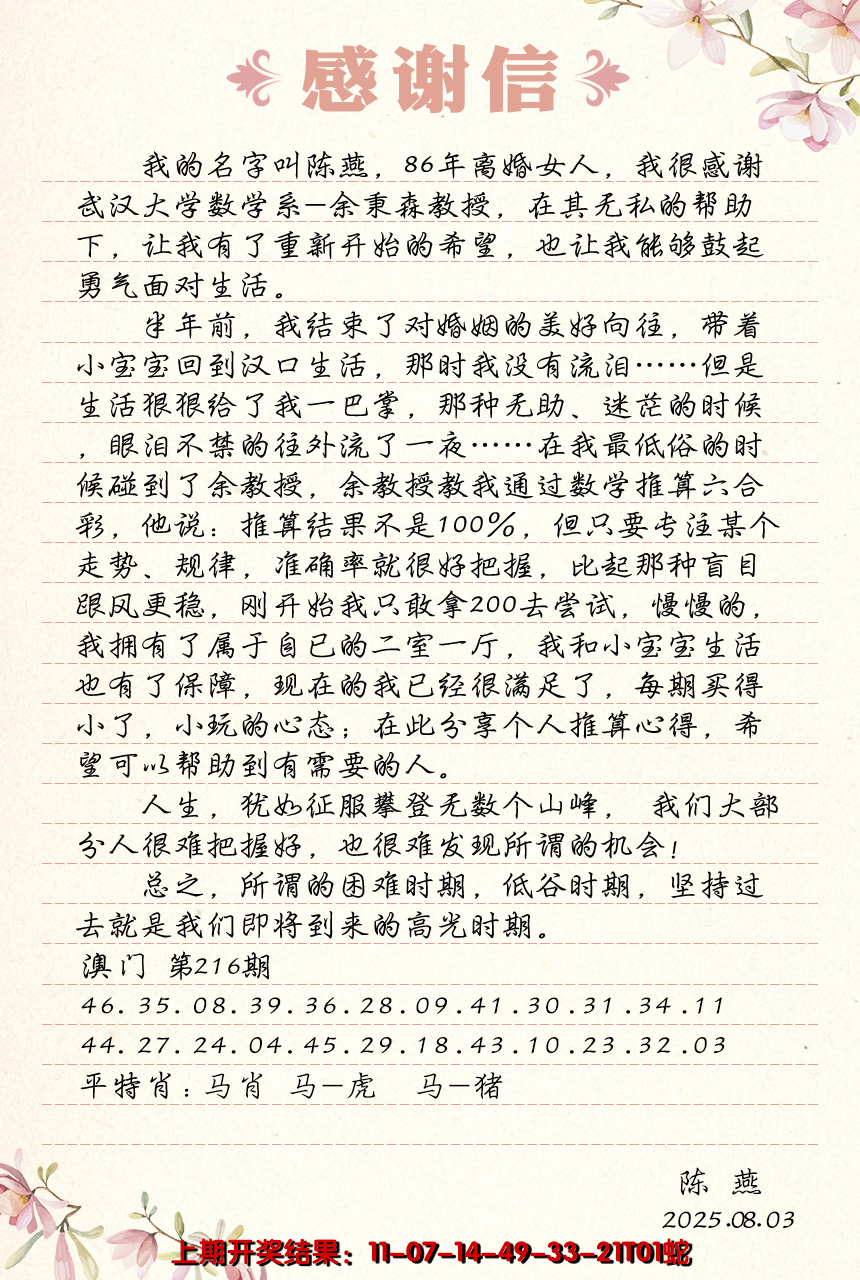 感谢信
我的名字叫陈燕，86年离婚女人，我很感谢
武汉大学数学系—余秉森教授，在其无私的帮助
下，让我有了重新开始的希望，也让我能够鼓起
勇气面对生活。
半年前，我结束了对婚姻的美好向往，带着
小宝宝回到汉口生活，那时我没有流泪……但是
生活狠狠给了我一巴掌，那种无助、迷茫的时候
，眼泪不禁的往外流了一夜……在我最低俗的时
候碰到了余教授，余教授教我通过数学推算六合
彩，他说：推算结果不是100%，但只要专注某个
走势、规律，准确率就很好把握，比起那种盲目
跟风更稳，刚开始我只敢拿200去尝试，慢慢的，
我拥有了属于自己的二室一厅，我和小宝宝生活
也有了保障，现在的我已经很满足了，每期买得
小了，小玩的心态；在此分享个人推算心得，希
望可以帮助到有需要的人。
人生，犹如征服攀登无数个山峰， 我们大部
分人很难把握好，也很难发现所谓的机会！
总之，所谓的困难时期，低谷时期，坚持过
去就是我们即将到来的高光时期。
澳门 第216期
46.35.08.39.36.28.09.41.30.31.34.11
44.27.24.04.45.29.18.43.10.23.32.03
平特肖：马肖 马—虎 马—猪
陈 燕
2025.08.03
上期开奖结果：11-07-14-49-33-21T01蛇